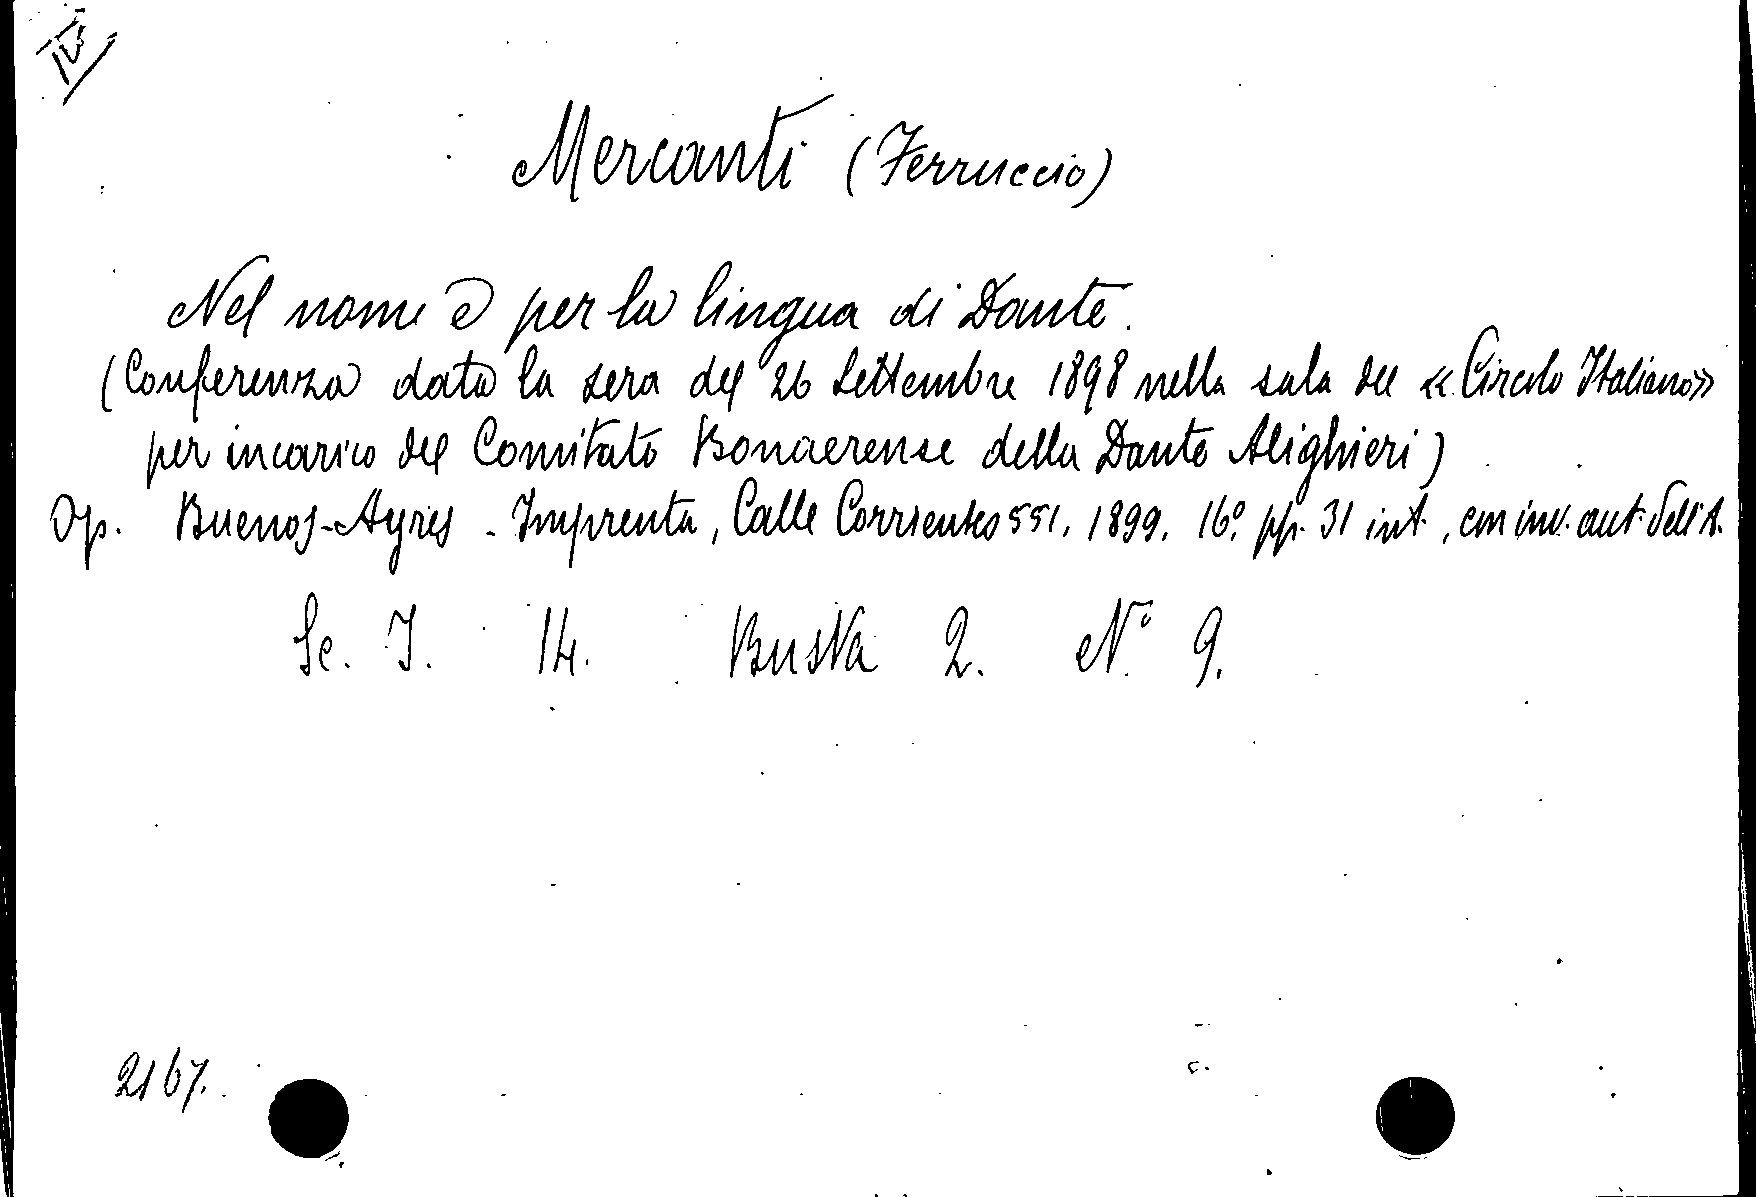 IV
Mercanti (Ferruccio)
Nel nome e per la lingua di Dante.
(Conferenza data la sera del 26 Settembre 1898 nella sala del «Circolo Italiano»
per incarico del Comitato Bonaerense della Dante Alighieri)
Op. Buenos-Ayres - Imprenta, Calle Corrientes 551. 1899. 16.º pp. 31 int., con inv. aut. dell'A.
Sc. I. 14. Busta 2. Nº 9.
2167.